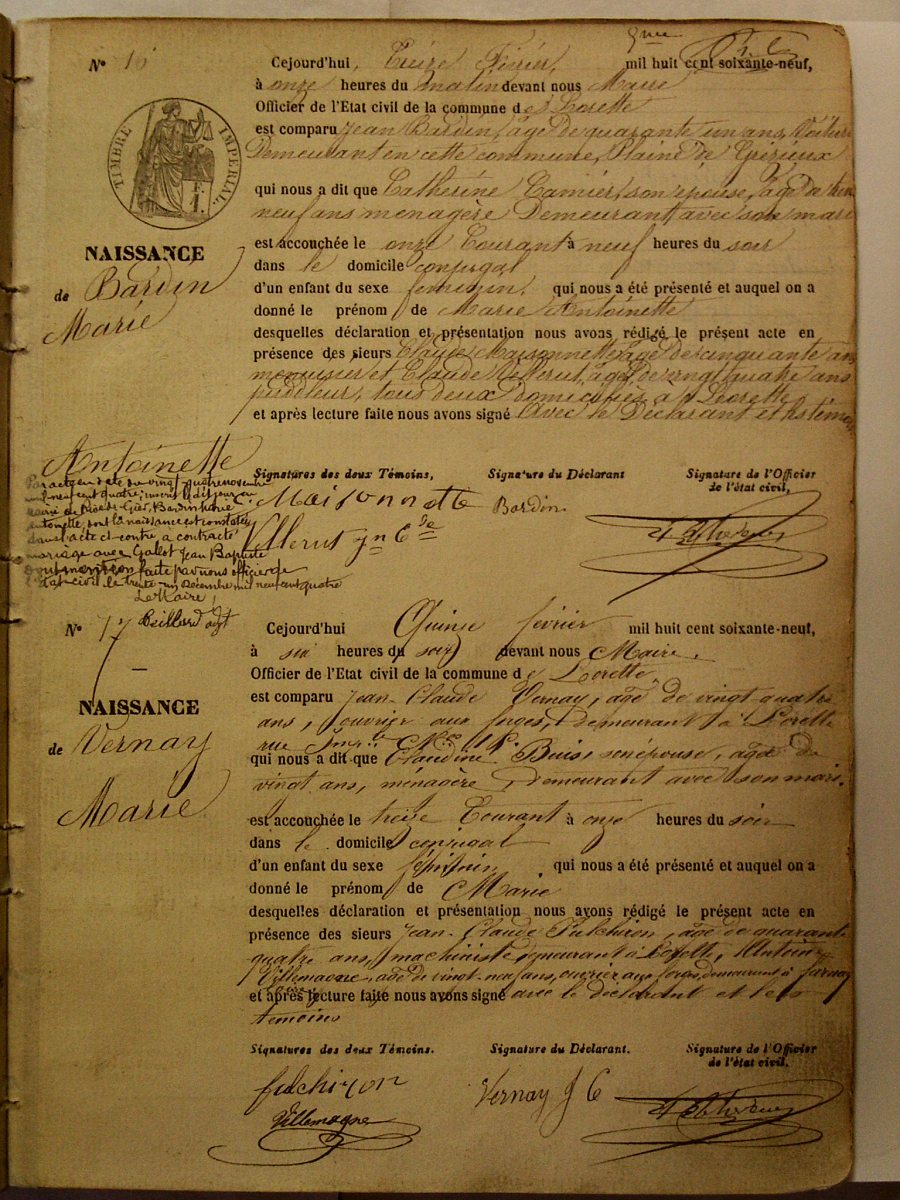 5me
N° 16
Cejourd'hui, Treize Février, mil huit cent soixante-neuf,
à onze heures du matin devant nous Maire
Officier de l'Etat civil de la commune de Lorette
est comparu Jean Bardin, âgé de quarante un ans,
Demeurant en cette commune, Plaine de Grézieux
qui nous a dit que Catherine Camier, son épouse, âgé de
neuf ans menagère Demeurant avec son mari
est accouchée le onze Courant à neuf heures du soir
dans le domicile conjugal
d'un enfant du sexe feminin, qui nous a été présenté et auquel on a
donné le prénom de Marie Antoinette
desquelles déclaration et présentation nous avons rédigé le présent acte en
présence des sieurs Claude Maisonnette, âgé de cinquante ans
menuisier et Claude Villerut, âgé de vingt quatre ans
puddleur, tous deux domiciliés à Lorette
et après lecture faite nous avons signé Avec le Déclarant et les témoins
TIMBRE IMPERIAL
NAISSANCE
de Bardin
Marie
Antoinette
Par acte en date du vingt-quatre novembre
mil neuf cent quatre, inscrit le dit jour en
mairie de Rive-de-Gier, Bardin Marie
Antoinette, dont la naissance est constatée
dans l'acte ci-contre à contracté
mariage avec Gallot Jean Baptiste
Dont mention faite par nous officier de
l'Etat-civil le trente-un Décembre mil neuf cent quatre
Le Maire,
Signatures des deux Témoins,
Signature du Déclarant
Signature de l'Officier
de l'état civil,
Maisonnette
Bardin
Villerut
N° 17
Cejourd'hui Quinze février mil huit cent soixante-neuf,
à six heures du soir devant nous Maire.
Officier de l'Etat civil de la commune de Lorette
est comparu Jean-Claude Vernay, âgé de vingt quatre
ans, ouvrier aux forges, demeurant à Lorette
rue
qui nous a dit que Claudine Buis, son épouse, âgée de
vingt ans, ménagère, demeurant avec son mari.
est accouchée le treize Courant à onze heures du soir
dans le domicile conjugal
d'un enfant du sexe féminin qui nous a été présenté et auquel on a
donné le prénom de Marie
desquelles déclaration et présentation nous avons rédigé le présent acte en
présence des sieurs Jean-Claude Fulchiron, âgé de quarante
quatre ans, machiniste demeurant à Lorette, Antoine
Villemagne, âgé de vingt-neuf ans, ouvrier aux forges, demeurant à Farnay
et après lecture faite nous avons signé avec le déclarant et les
témoins
NAISSANCE
de Vernay
Marie
Signatures des deux Témoins.
Signature du Déclarant.
Signature de l'Officier
de l'état civil.
fulchiron
Vernay J C
Villemagne